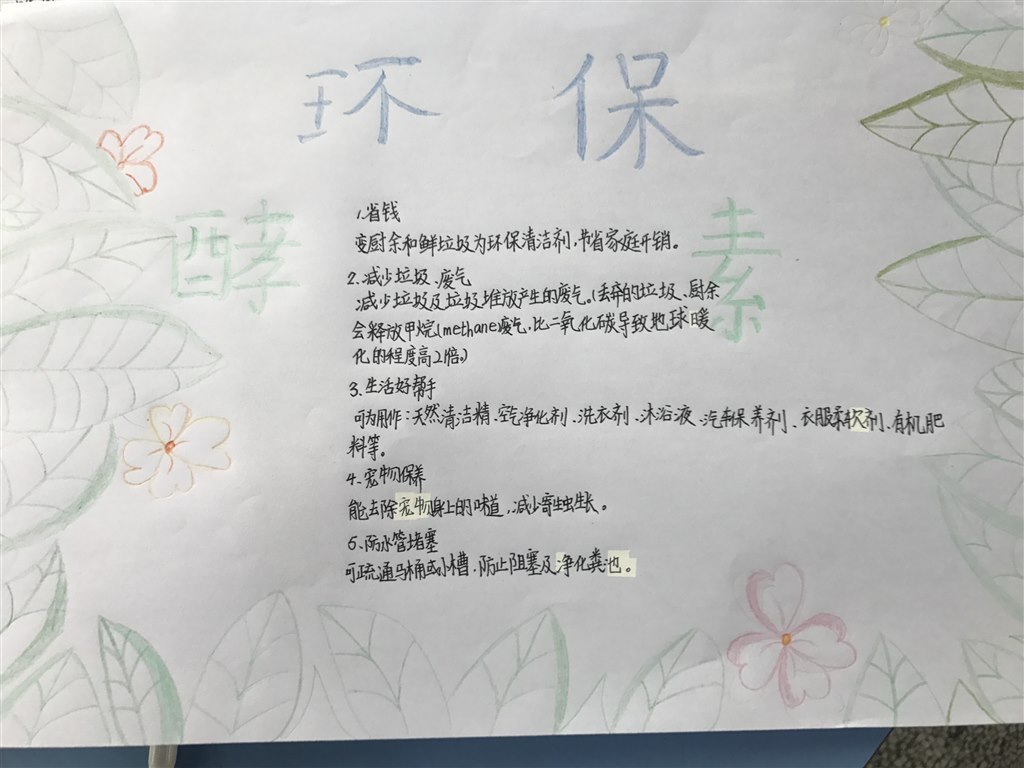 环保
酵素
1.省钱
变厨余和鲜垃圾为环保清洁剂,节省家庭开销。
2.减少垃圾、废气
减少垃圾及垃圾堆放产生的废气。(丢弃的垃圾、厨余
会释放甲烷(methane废气,比二氧化碳导致地球暖
化的程度高21倍。)
3.生活好帮手
可为用作:天然清洁精、空气净化剂、洗衣剂、沐浴液、汽车保养剂、衣服柔软剂、有机肥
料等。
4.宠物保养
能去除宠物身上的味道,减少寄生虫生长。
5、防水管堵塞
可疏通马桶或小槽,防止阻塞及净化粪池。